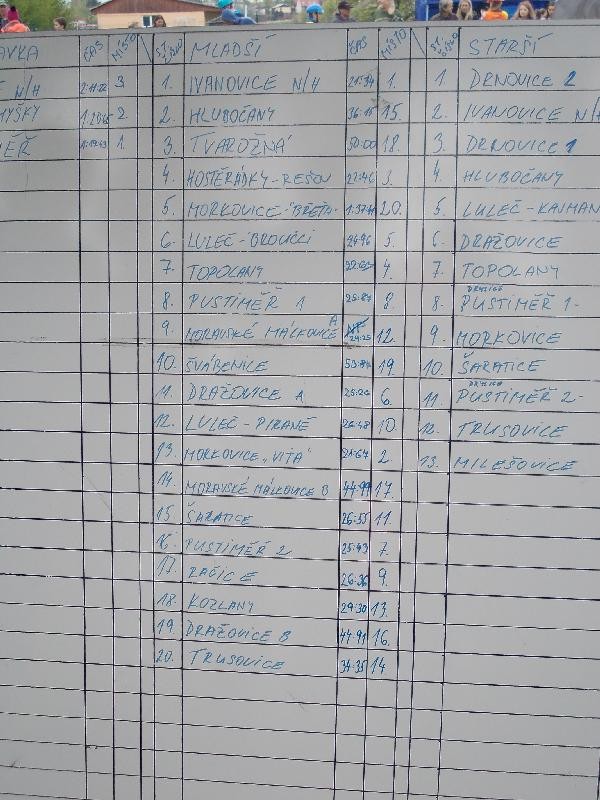 AVKA ČAS MÍSTO ST. ČÍSLO MLADŠÍ ČAS MÍSTO ST. ČÍSLO STARŠÍ
N/H 3 1. IVANOVICE N/H 1. 1. DRNOVICE 2
MYŠKY 2. 2. HLUBOČANY 36:15 15. 2. IVANOVICE N/H
MĚŘ 1. 3. TVAROŽNÁ 50:00 18. 3. DRNOVICE 1
4. HOSTĚRÁDKY-REŠOV 22:46 3. 4. HLUBOČANY
5. MORKOVICE- 20. 5. LULEČ-KAJMAN
6. LULEČ-BROUČCI 24:96 5. 6. DRAŽOVICE
7. TOPOLANY 4. 7. TOPOLANY
8. PUSTIMĚŘ 1 25:87 8. 8. DRUŽICE PUSTIMĚŘ 1-
9. MORAVSKÉ MÁLKOVICE A 29:25 12. 9. MORKOVICE
10. ŠVÁBENICE 19. 10. ŠARATICE
11. DRAŽOVICE A 25:26 6. 11. PUSTIMĚŘ 2-
12. LULEČ-PIRANĚ 26:48 10. 12. TRUSOVICE
13. MORKOVICE „VITA" 21:67 2 13. MILEŠOVICE
14. MORAVSKÉ MÁLKOVICE B 44:99 17.
15 ŠARATICE 26:55 11.
16. PUSTIMĚŘ 2 25:43 7.
17. RAČICE 26:36 9.
18. KOZLANY 29:30 13.
19. DRAŽOVICE B 44:91 16.
20. TRUSOVICE 34:35 14